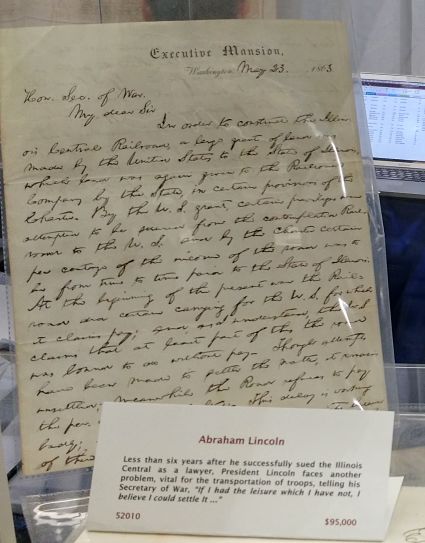 Executive Mansion,
Washington, May 23, 1863.
Hon. Sec. of War.
My dear Sir
In order to construct the Illin-
ois Central Railroad, a large grant of land was
made by the United States to the State of Illinois,
which land was again given to the Railroad
Company by the State, in certain provisions of the
Charter. By the U.S. grant, certain privileges were
attempted to be secured from the contemplated Rail-
road to the U.S. and by the Charter certain
per centage of the income of the road was to
be from time to time paid to the State of Illinois.
At the beginning of the present war the Rail-
road did certain carrying for the U.S. for which
it claims pay; and, as I understand, the U.S.
claims that at least part of this the road
was bound to do without pay. Though attempts
have been made to settle the matter, it remains
unsettled, meanwhile the Road refuses to pay
the per. This delay is
badly;
of the
Abraham Lincoln
Less than six years after he successfully sued the Illinois
Central as a lawyer, President Lincoln faces another
problem, vital for the transportation of troops, telling his
Secretary of War, "If I had the leisure which I have not, I
believe I could settle it ..."
52010 $95,000